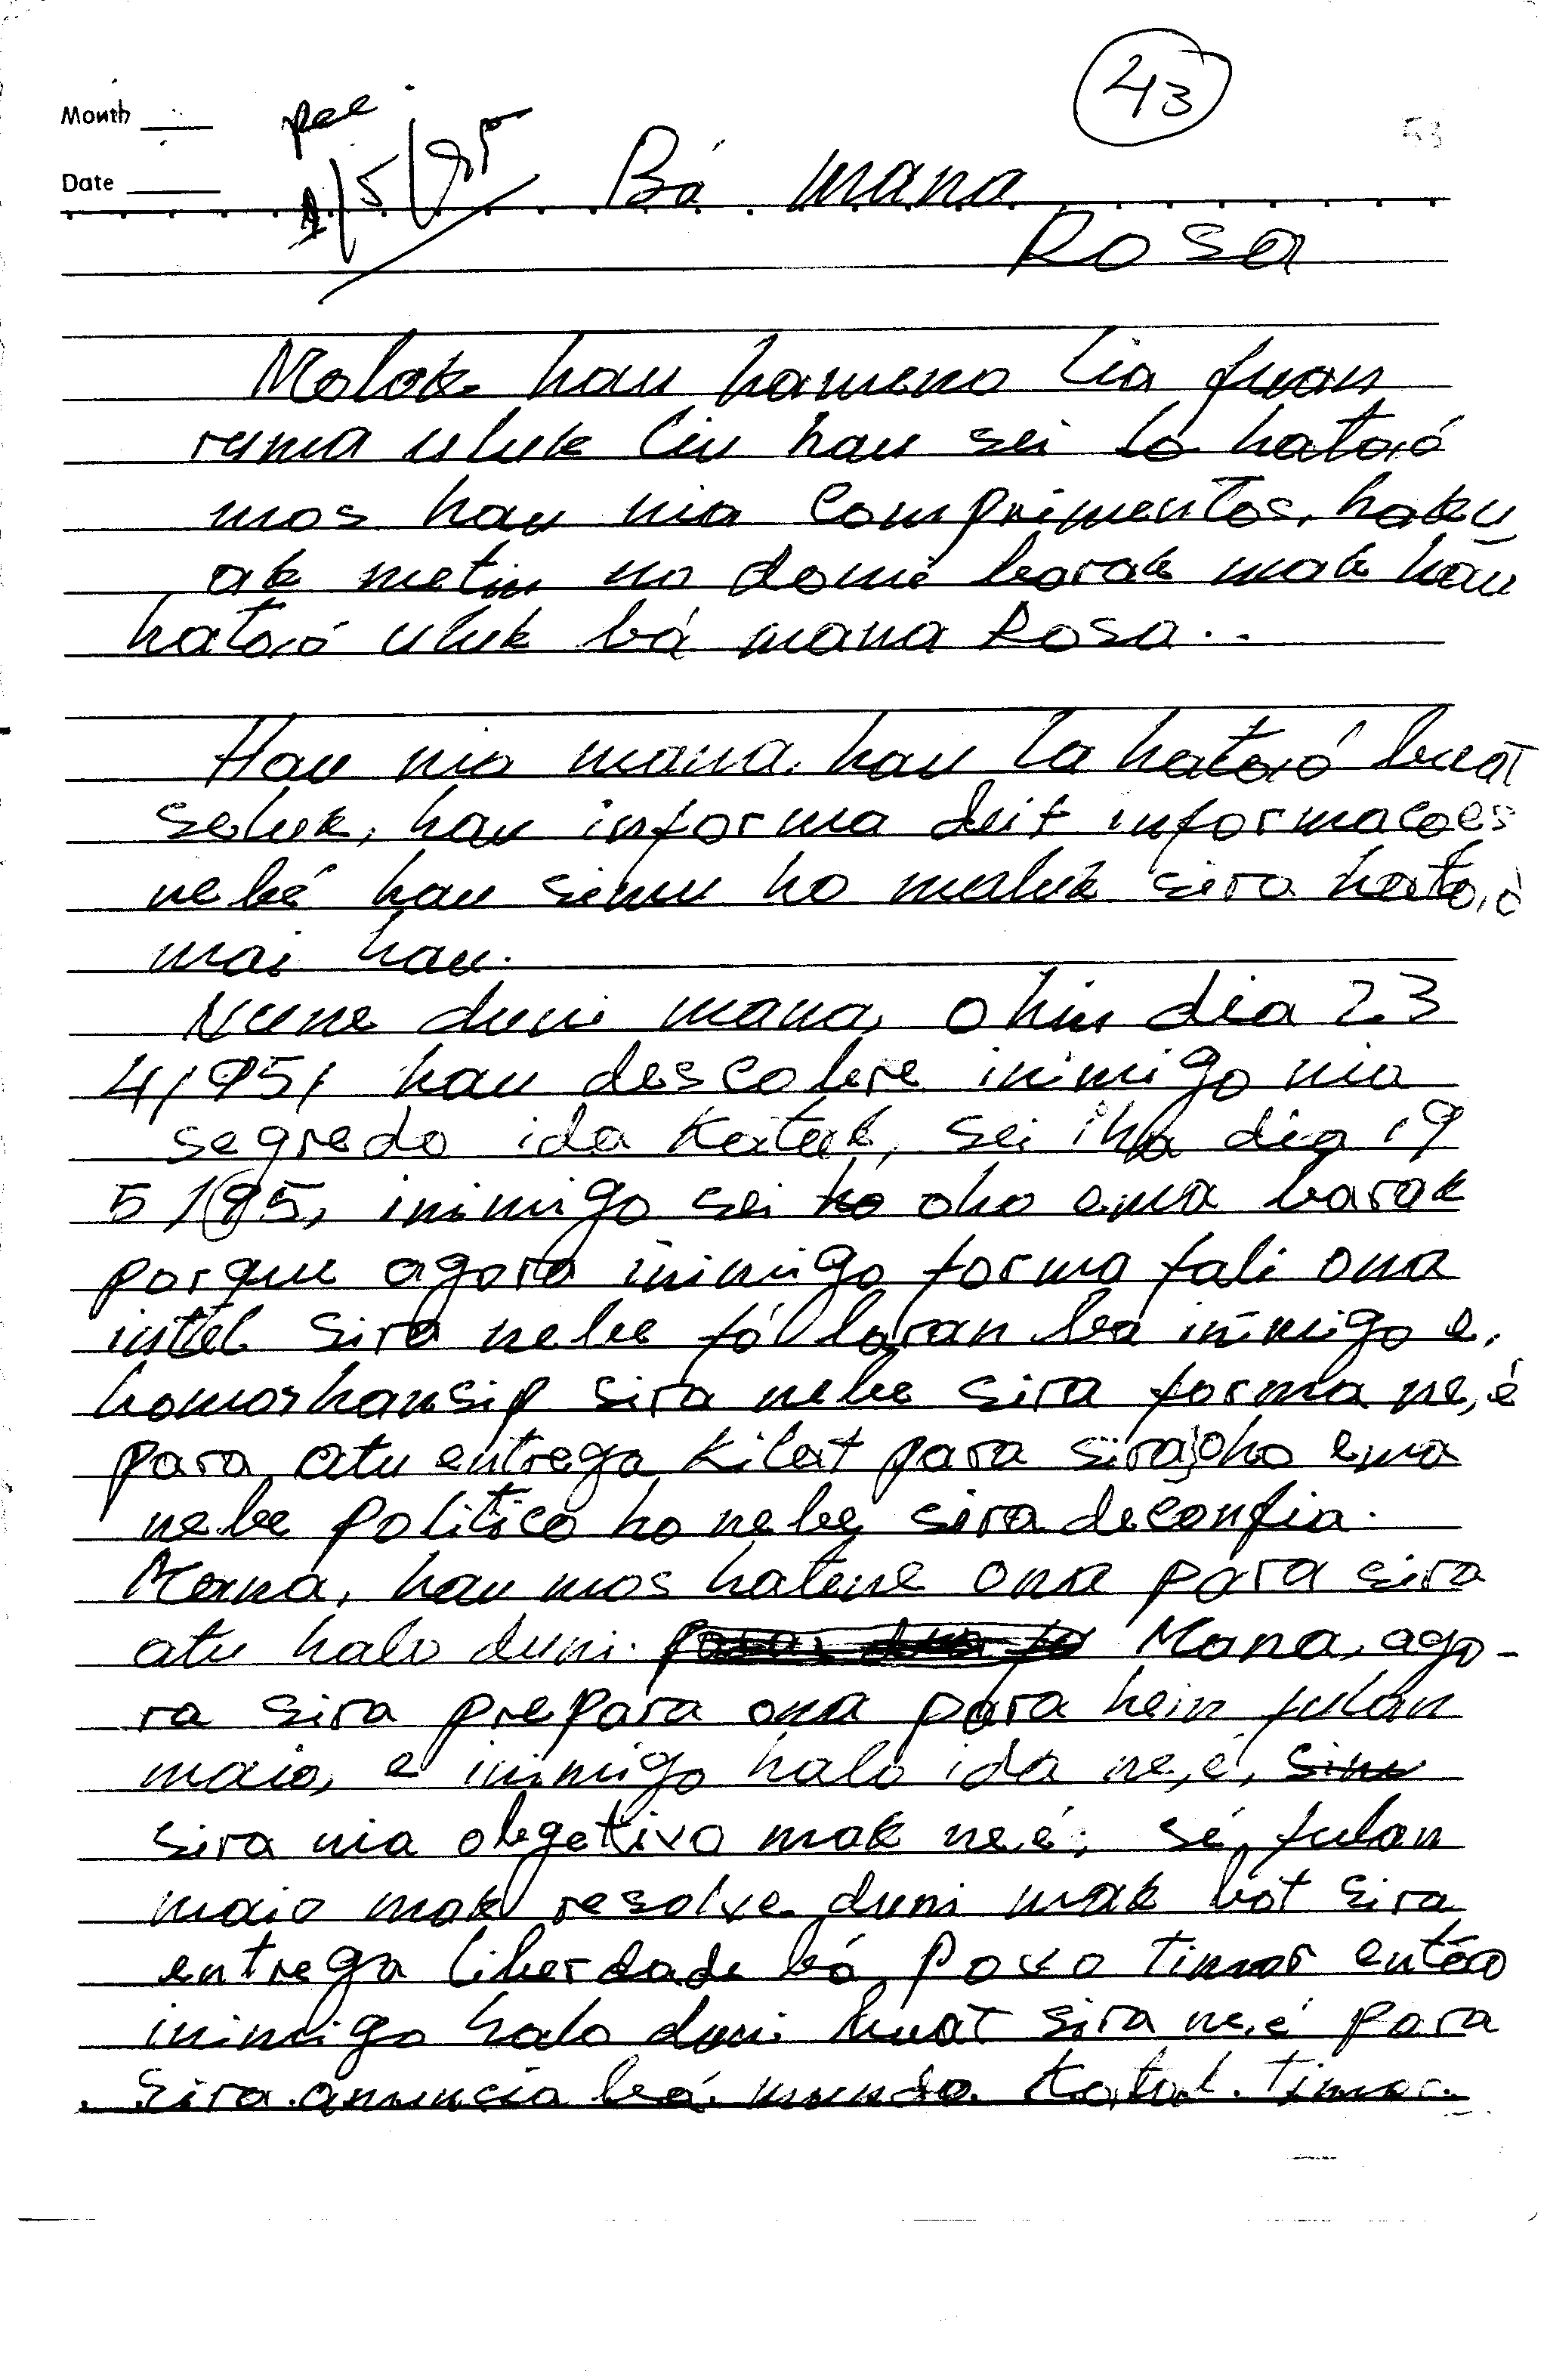 43
53
Month
Rec
1/5/95
Date
Bá mana
Rosa
Molok hau hameno lia fuan
ruma uluk liu hau sei lo hato,ó
mos hau nia comprimentos, haku
ak metin no domi barak mak hau
hato,ó uluk bá mana Rosa..
Hau nia mana, hau la hato,ó buat
seluk, hau informa deit informacoes
nebé hau simu ho maluk sira hato,ó
mai hau.
Nune duni mana, ohin dia 23
4/95/ hau descobre inimigo nia
segredo ida katak, sei iha dia 19
5/95, inimigo sei ho oho ema barak
porque agora inimigo forma fali ona
intel sira nebe fó laran ba inimigo e,
homorhansip sira nebe sira forma ne,é
para atu entrega kilat para sira oho ema
nebe politico ho nebe sira deconfia.
Mana, hau mos hatene ona para sira
atu halo duni. Mana, ago-
ra sira prepara ona para hein fulan
maio, e inimigo halo ida ne,é, simu
sira nia obgetivo mak ne,é; sé, fulan
maio mak resolve duni mak bót sira
entrega liberdade bá Povo Timor entáo
inimigo halo duni buat sira ne,é para
sira anuncia bá mundo katak Timor